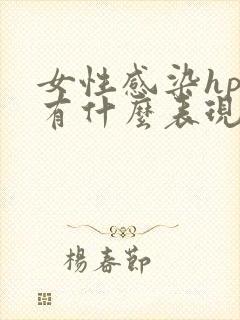 女性感染hp
有什麼表現
楊春節